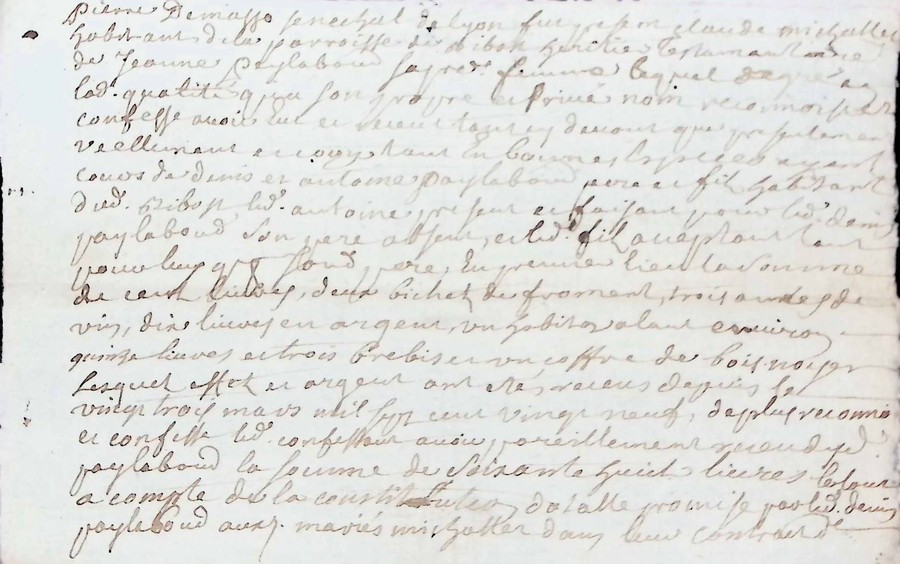 pierre Demasso senechal de lyon fut present claude michallet
habitant de la parroisse de ribost heritier Testamentaire
de Jeanne paylaboud sa fe. femme lequel degré en
lad. qualité qu'en son propre et Privé nom reconnoist et
confesse avoir eut et receut tant cy devant que presentement
reellement et en bonnes especes ayant
cours de denis et antoine paylaboud pere et fil habitant
dud. Ribost led. antoine present et faisant pour led. denis
paylaboud son pere absent, et led. fil acceptant tant
pour luy que sond. pere, En premier lieu la somme
de cent livres, deux bichet de froment, trois anées de
vin, dix livres en argent, un habit valant environ
quinze livres et trois brebis et un coffre de bois noyer
Lesquel effet et argent ont etés receus depuis le
vingt trois mars mil sept cent vingt neuf, de plus reconnoi
et confesse led. confessant avoir pareillement receu desd.
paylaboud la somme de soixante huit livres le tout
a compte de la constitution dotalle promise par led. denis
paylaboud auxd. mariés michallet dans leur contract d.